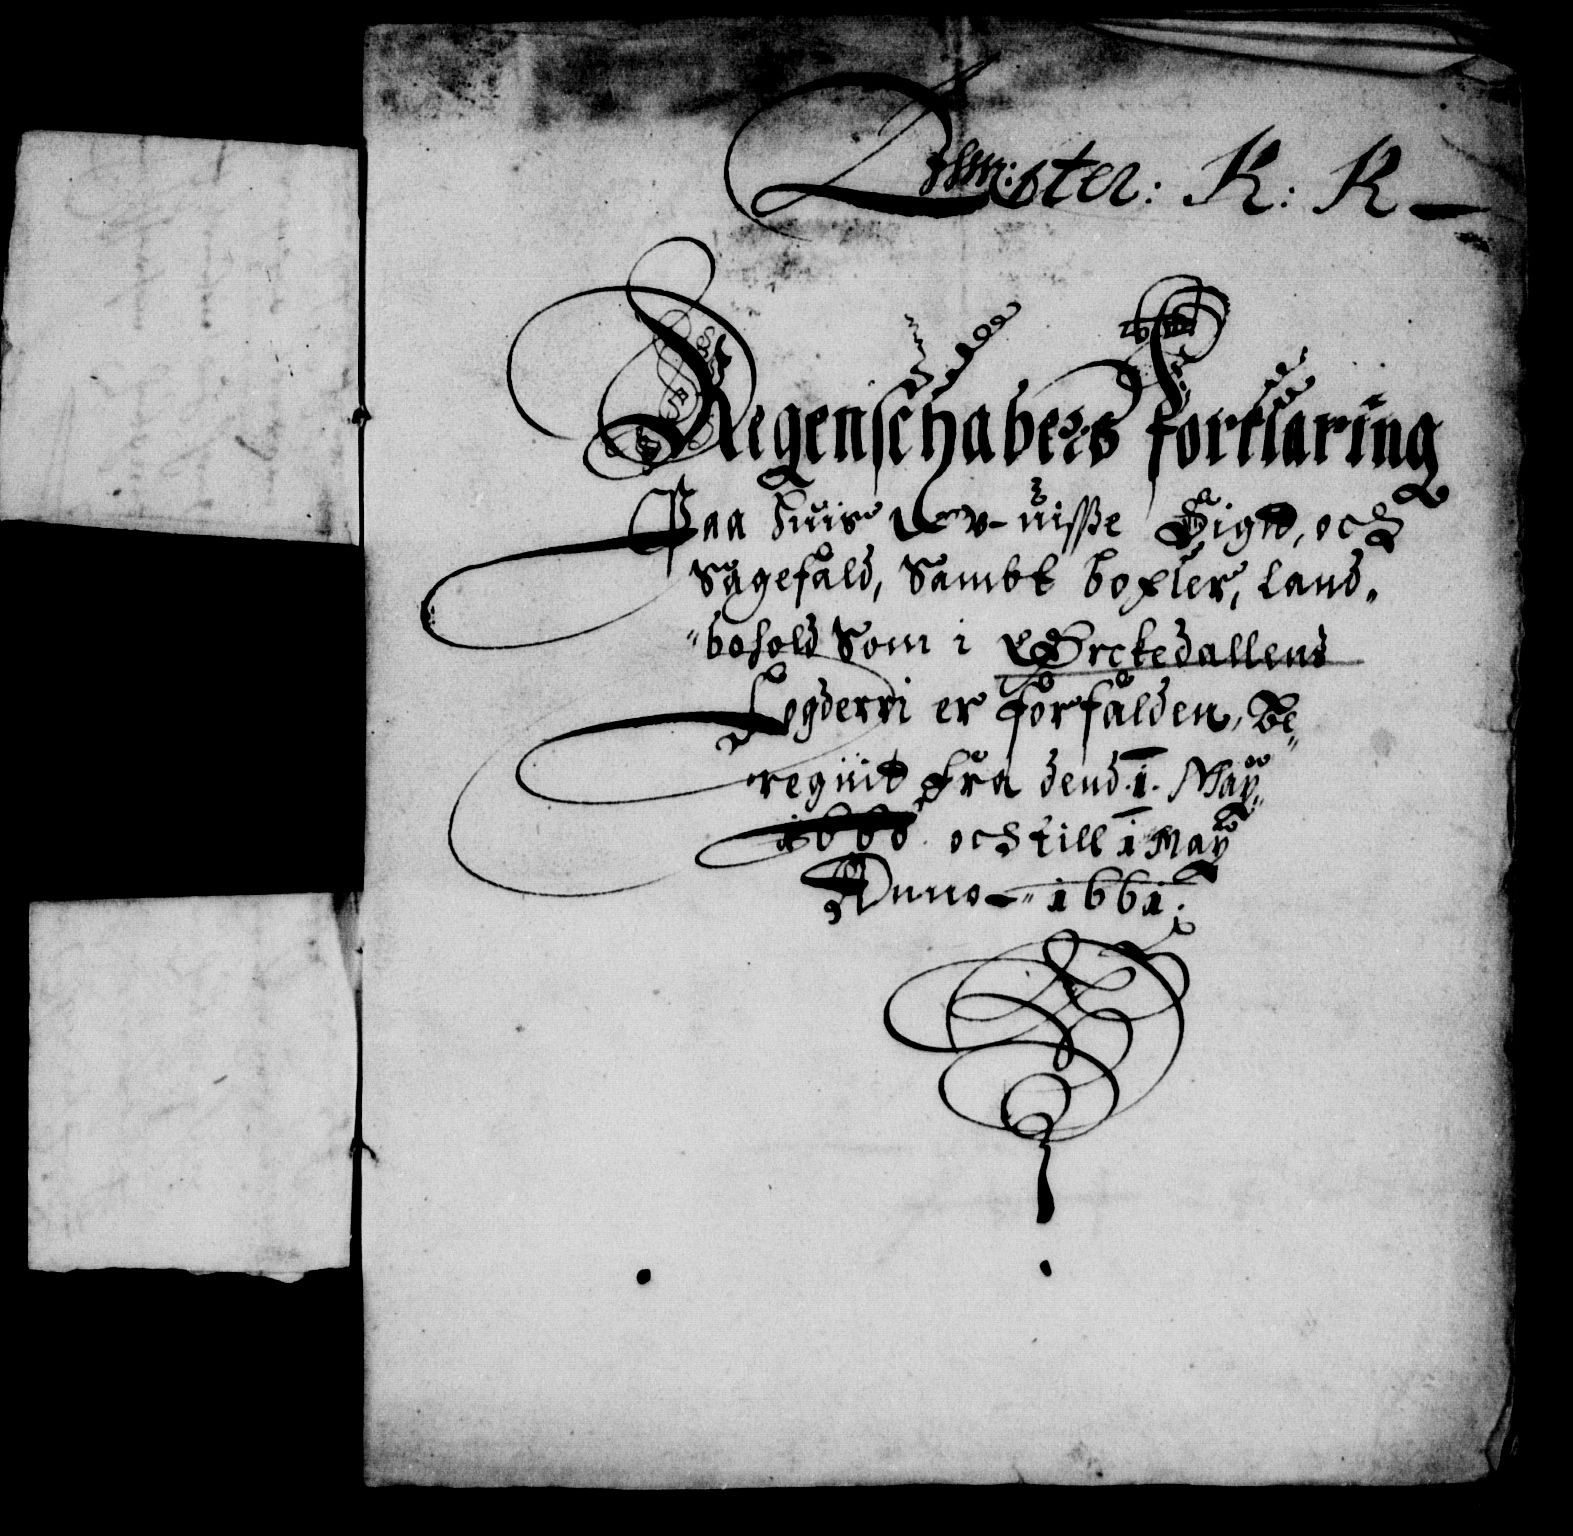 K: K
Regenschabers forklaring
Paa huis U-v-uisße Sigt, och
Sagefald, Sambt boxler, Land„
„bohold Som i Ørckedallens
Fogderri er forfalden, Be„
regnit fra dend .1. May„
1660 och till 1 May
Anno 1661.